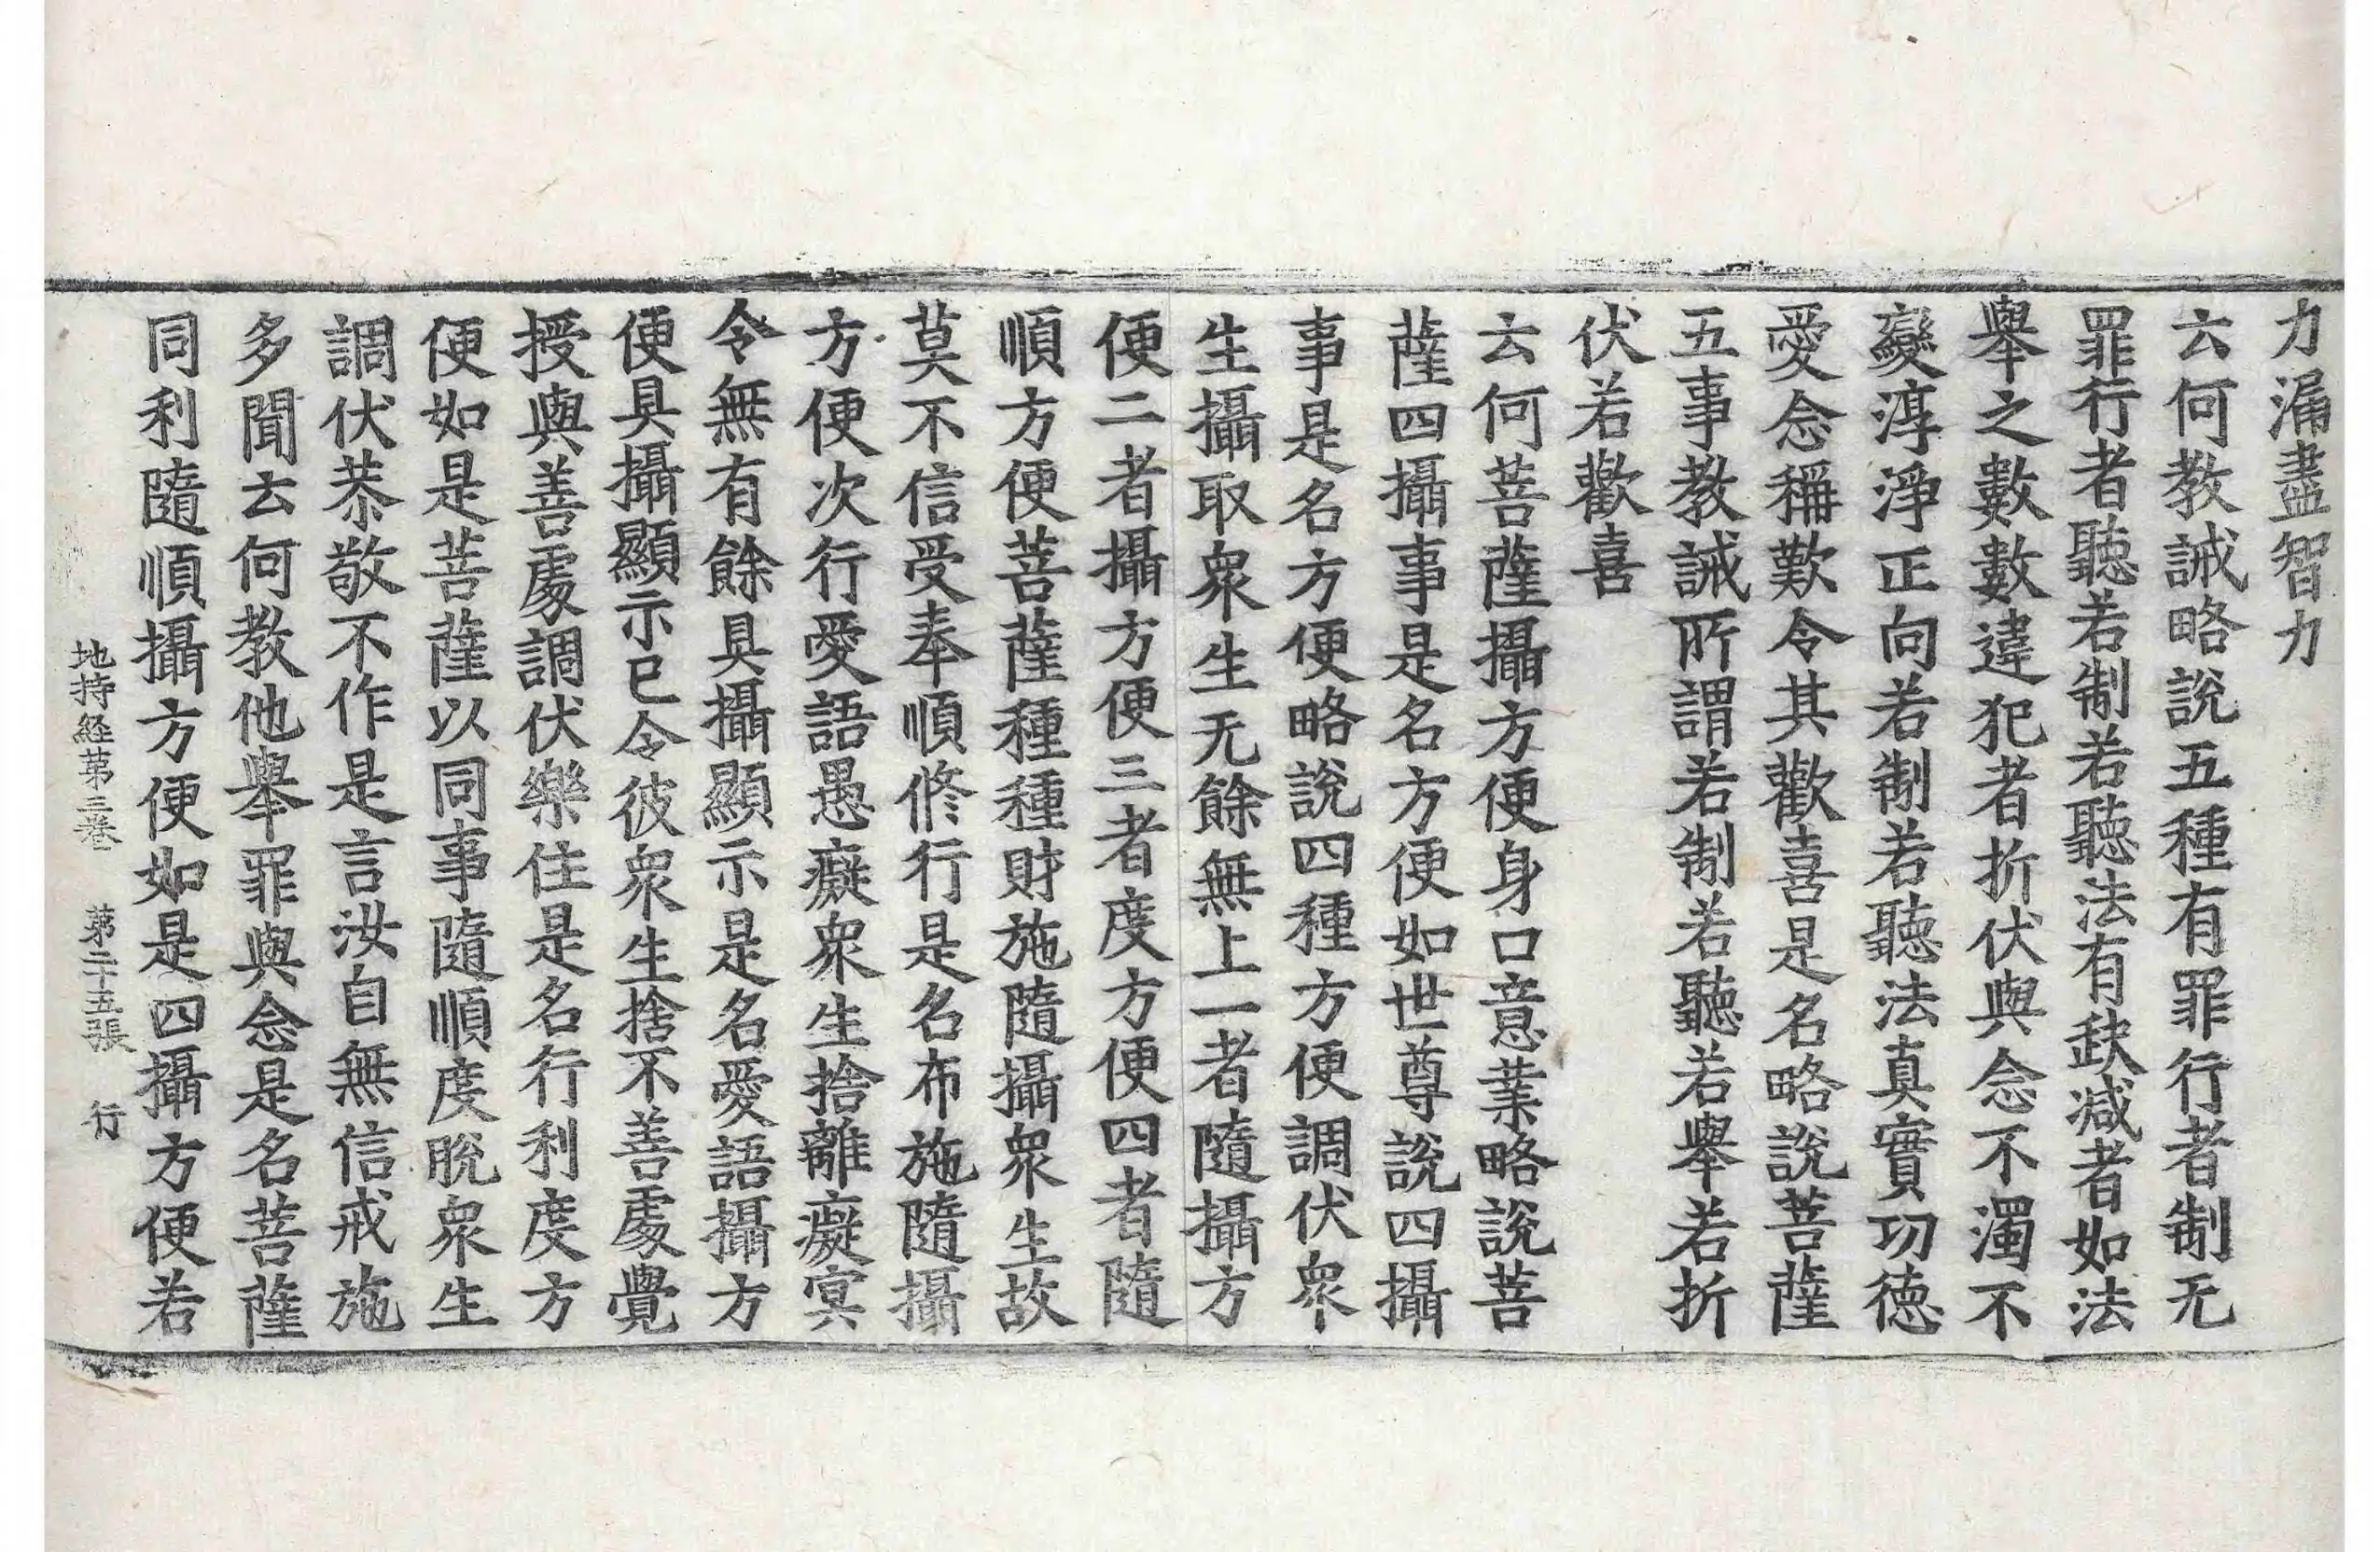 力漏盡智力
云何教誡略說五種有罪行者制无
罪行者聽若制若聽法有缺减者如法
舉之數數違犯者折伏與念不濁不
變淳淨正向若制若聽法真實功德
愛念稱歎令其歡喜是名略說菩薩
五事教誡所謂若制若聽若舉若折
伏若歡喜
云何菩薩攝方便身口意業略說菩
薩四攝事是名方便如世尊說四攝
事是名方便略說四種方便調伏衆
生攝取衆生无餘無上一者隨攝方
便二者攝方便三者度方便四者隨
順方便菩薩種種財施隨攝衆生故
莫不信受奉順修行是名布施隨攝
方便次行愛語愚癡衆生捨離癡冥
令無有餘具攝顯示是名愛語攝方
便具攝顯示已令彼衆生捨不善處覺
授與善處調伏樂住是名行利度方
便如是菩薩以同事隨順度脫衆生
調伏恭敬不作是言汝自無信戒施
多聞云何教他舉罪與念是名菩薩
同利隨順攝方便如是四攝方便若
地持経第三卷 第二十五張 行